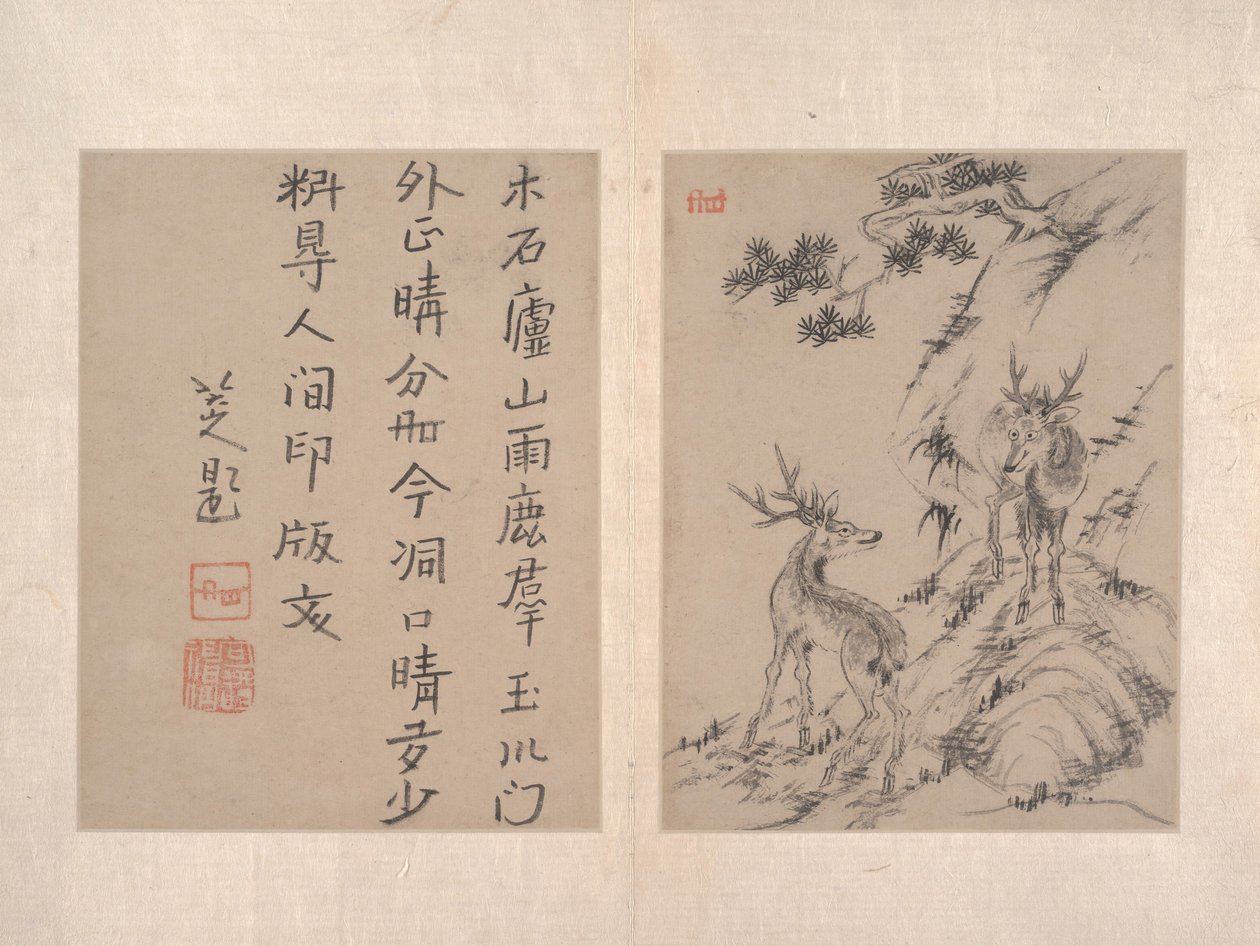 木石廬山雨鹿羣玉川门
外正晴分今洞口晴多少
料尋人间印版
題